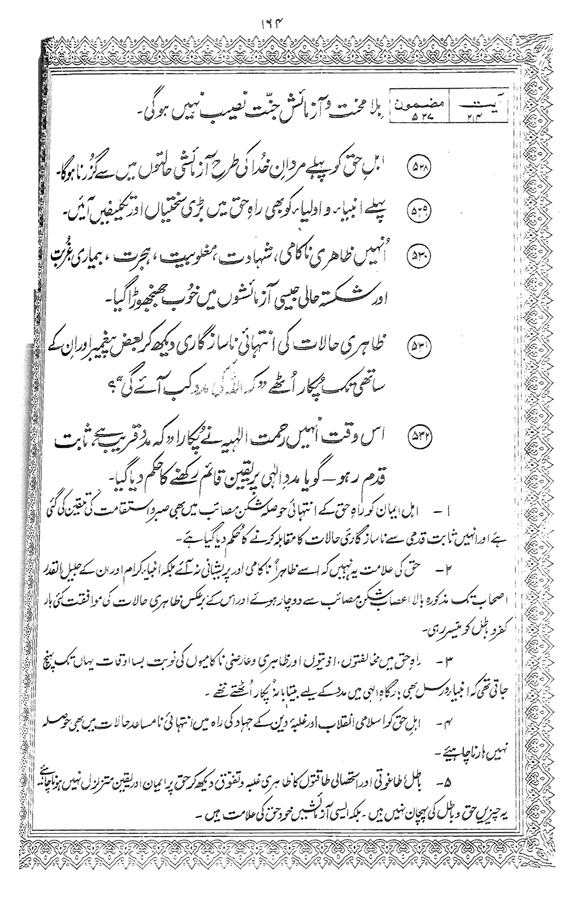 ۱۶۴
آیت ۲۱۴ مضمون ۵۲۷ بلا محنت و آزمائش جنّت نصیب نہیں ہوگی۔
۵۲۸ اہلِ حق کو پہلے مردانِ خدا کی طرح آزمائشی حالتوں میں سے گزرنا ہوگا۔
۵۲۹ پہلے انبیاء و اولیاء کو بھی راہِ حق میں بڑی سختیاں اور تکلیفیں آئیں۔
۵۳۰ اُنہیں ظاہری ناکامی، شہادت، مغلوبیت، ہجرت، بیماری غربت
اور شکستہ حالی جیسی آزمائشوں میں خوب جھنجھوڑا گیا۔
۵۳۱ ظاہری حالات کی انتہائی ناسازگاری دیکھ کر بعض پیغمبر اور ان کے
ساتھی تک پکار اُٹھے ”کہ اللہ کی مدد کب آئے گی“؟
۵۳۲ اس وقت انہیں رحمت الٰہیہ نے پکارا ”کہ مدد قریب ہے، ثابت
قدم رہو – گویا مددِ الٰہی پر یقین قائم رکھنے کا حکم دیا گیا۔
۱ – اہل ایمان کو راہِ حق کے انتہائی حوصلہ شکن مصائب میں بھی صبر و استقامت کی تلقین کی گئی
ہے اور انہیں ثابت قدمی سے ناسازگاری حالات کا مقابلہ کرنے کا حکم دیا گیا ہے۔
۲ – حق کی علامت یہ نہیں کہ اسے ظاہراً ناکامی اور پریشانی نہ آئے بلکہ انبیاء کرام اور ان کے جلیل القدر
اصحاب تک مذکورہ بالا اعصاب شکن مصائب سے دوچار ہوئے اور اس کے برعکس ظاہری حالات کی موافقت کئی بار
کفر و باطل کو میسر رہی۔
۳ – راہِ حق میں مخالفتوں، اذیتوں اور ظاہری و عارضی ناکامیوں کی نوبت بسا اوقات یہاں تک پہنچ
جاتی تھی کہ انبیاء و رسل بھی بارگاہِ الٰہی میں مدد کے لیے بیتابانہ پکار اُٹھتے تھے۔
۴ – اہلِ حق کو اسلامی انقلاب اور غلبۂ دین کے جہاد کی راہ میں انتہائی نامساعد حالات میں بھی حوصلہ
نہیں ہارنا چاہیئے۔
۵ – باطل طاغوتی اور استحصالی طاقتوں کا ظاہری غلبہ و تفوق دیکھ کر حق پر ایمان اور یقین متزلزل نہیں ہونا چاہئے
یہ چیزیں حق و باطل کی پہچان نہیں ہیں۔ بلکہ ایسی آزمائشیں خود حق کی علامت ہیں۔